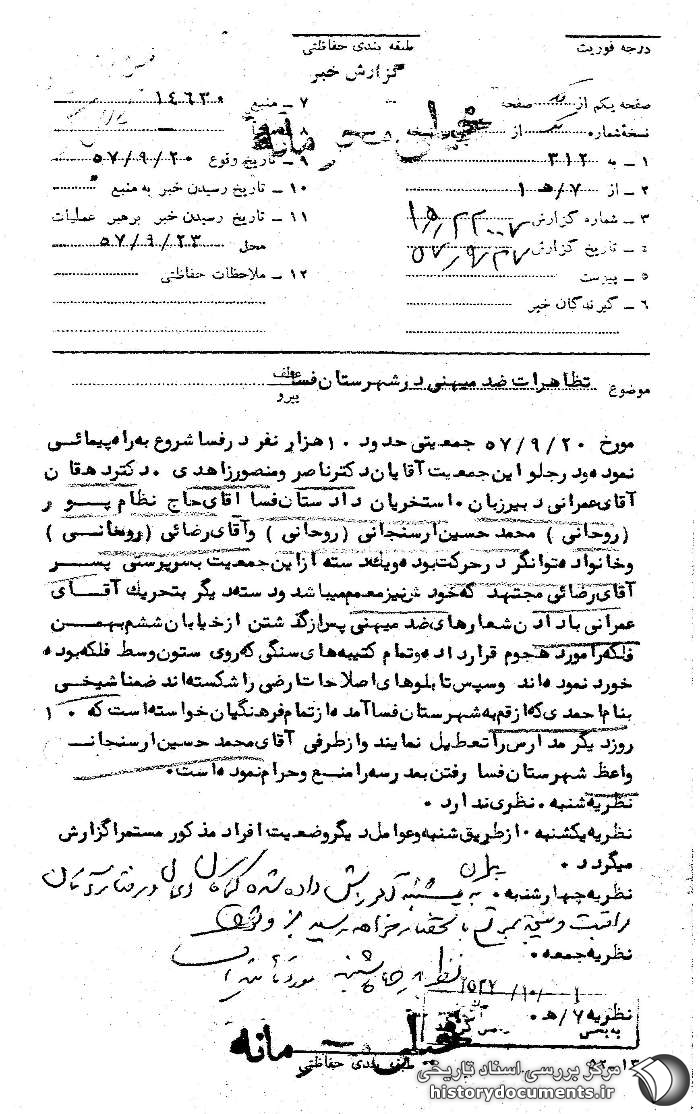 درجه فوریت
طبقه بندی حفاظتی
گزارش خبر
صفحه یکم از صفحه
نسخهٔ شماره از نسخه
۱ – به ۳۱۲
۲ – از ۷/ه ۱
۳ – شماره گزارش
۴ – تاریخ گزارش
۵ – پیوست
۶ – گیرندگان خبر
۷ – منبع ۱۴۶۳۰
۸
۹ – تاریخ وقوع ۵۷/۹/۲۰
۱۰ – تاریخ رسیدن خبر به منبع
۱۱ – تاریخ رسیدن خبر برهبر عملیات
محل ۵۷/۹/۲۳
۱۲ – ملاحظات حفاظتی
خیلی محرمانه
موضوع تظاهرات ضد میهنی در شهرستان فسا
عطف
پیرو
مورخ ۵۷/۹/۲۰ جمعیتی حدود ۱۰ هزار نفر در فسا شروع به راه پیمائی
نموده و در جلو این جمعیت آقایان دکتر ناصر و منصور زاهدی ۰ دکتر دهقان
آقای عمرانی دبیر زبان ۰ استخریان دادستان فسا اقای حاج نظام پور
(روحانی) محمد حسین ارسنجانی (روحانی) و آقای رضائی (روحانی)
و خانواده توانگر در حرکت بوده و یک دسته از این جمعیت بسرپرستی پسر
آقای رضائی مجتهد که خود نیز معمم میباشد و دسته دیگر بتحریک آقای
عمرانی با دادن شعارهای ضد میهنی پس از گذشتن از خیابان ششم بهمن
فلکه را مورد هجوم قرار داده و تمام کتیبه های سنگی که روی ستون وسط فلکه بوده
خورد نموده اند وسپس تابلوهای اصلاحات ارضی را شکسته اند ضمنا شیخی
بنام احمدی که از قم به شهرستان فسا آمده از تمام فرهنگیان خواسته است که ۱۰
روز دیگر مدارس را تعطیل نمایند و از طرفی آقای محمد حسین ارسنجانی
واعظ شهرستان فسا رفتن بمدرسه را منع و حرام نموده است ۰
نظریه شنبه ۰ نظری ندارد ۰
نظریه یکشنبه ۰ از طریق شنبه و عوامل دیگر وضعیت افراد مذکور مستمرا گزارش
میگردد ۰
نظریه چهارشنبه ۰ به یکشنبه آموزش داده شده
مراقبت و نتیجه
نظریه جمعه ۰ نظریه چهارشنبه مورد تائید است
نظریه ۷/ه ۰
خیلی محرمانه
طبقه بندی حفاظتی
مرکز بررسی اسناد تاریخی
historydocuments.ir